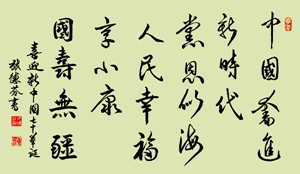 中國奮進
新時代
黨恩似海
人民幸福
享小康
國壽無疆
喜迎新中国七十華誕
敖德芬書